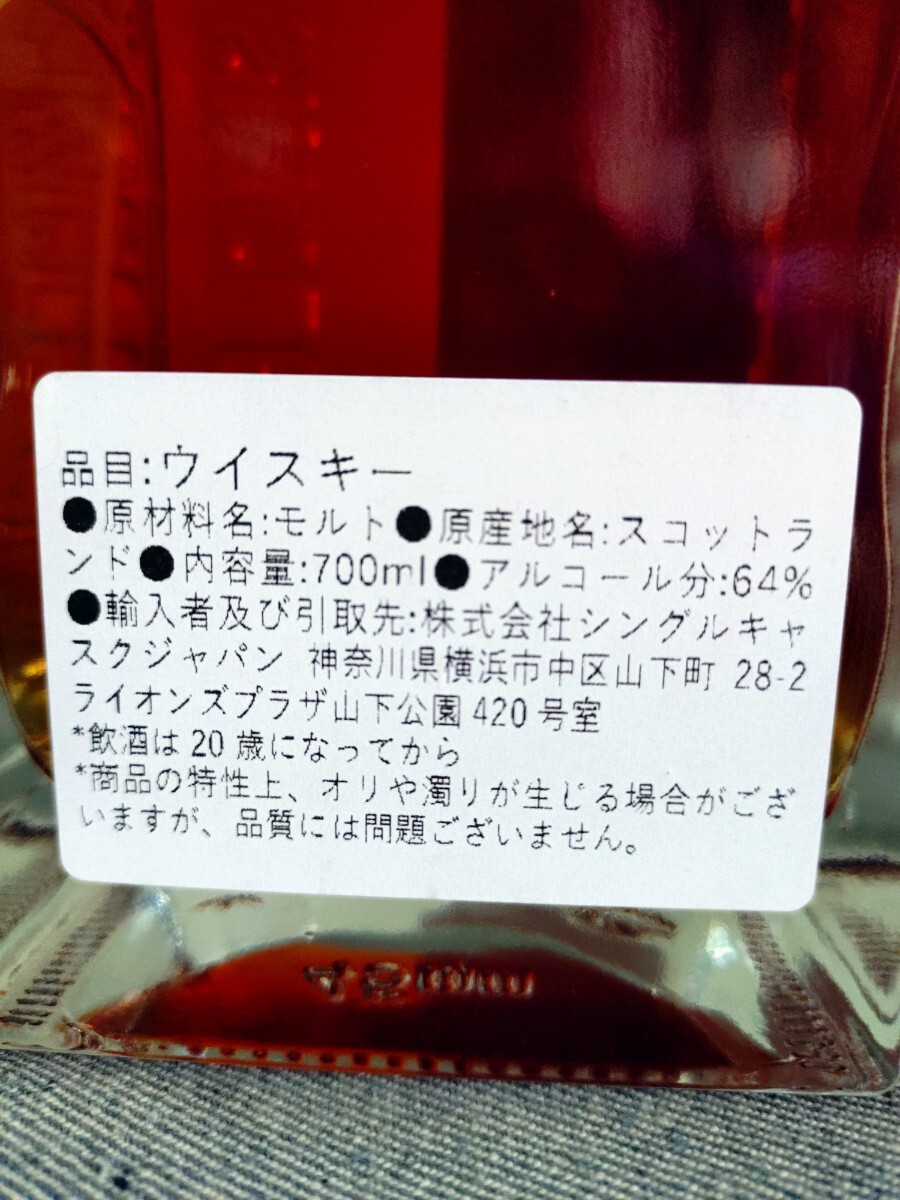 品目:ウイスキー
●原材料名:モルト●原産地名:スコットラ
ンド●内容量:700ml●アルコール分:64%
●輸入者及び引取先:株式会社シングルキャ
スクジャパン 神奈川県横浜市中区山下町 28-2
ライオンズプラザ山下公園 420 号室
*飲酒は 20 歳になってから
*商品の特性上、オリや濁りが生じる場合がござ
いますが、品質には問題ございません。